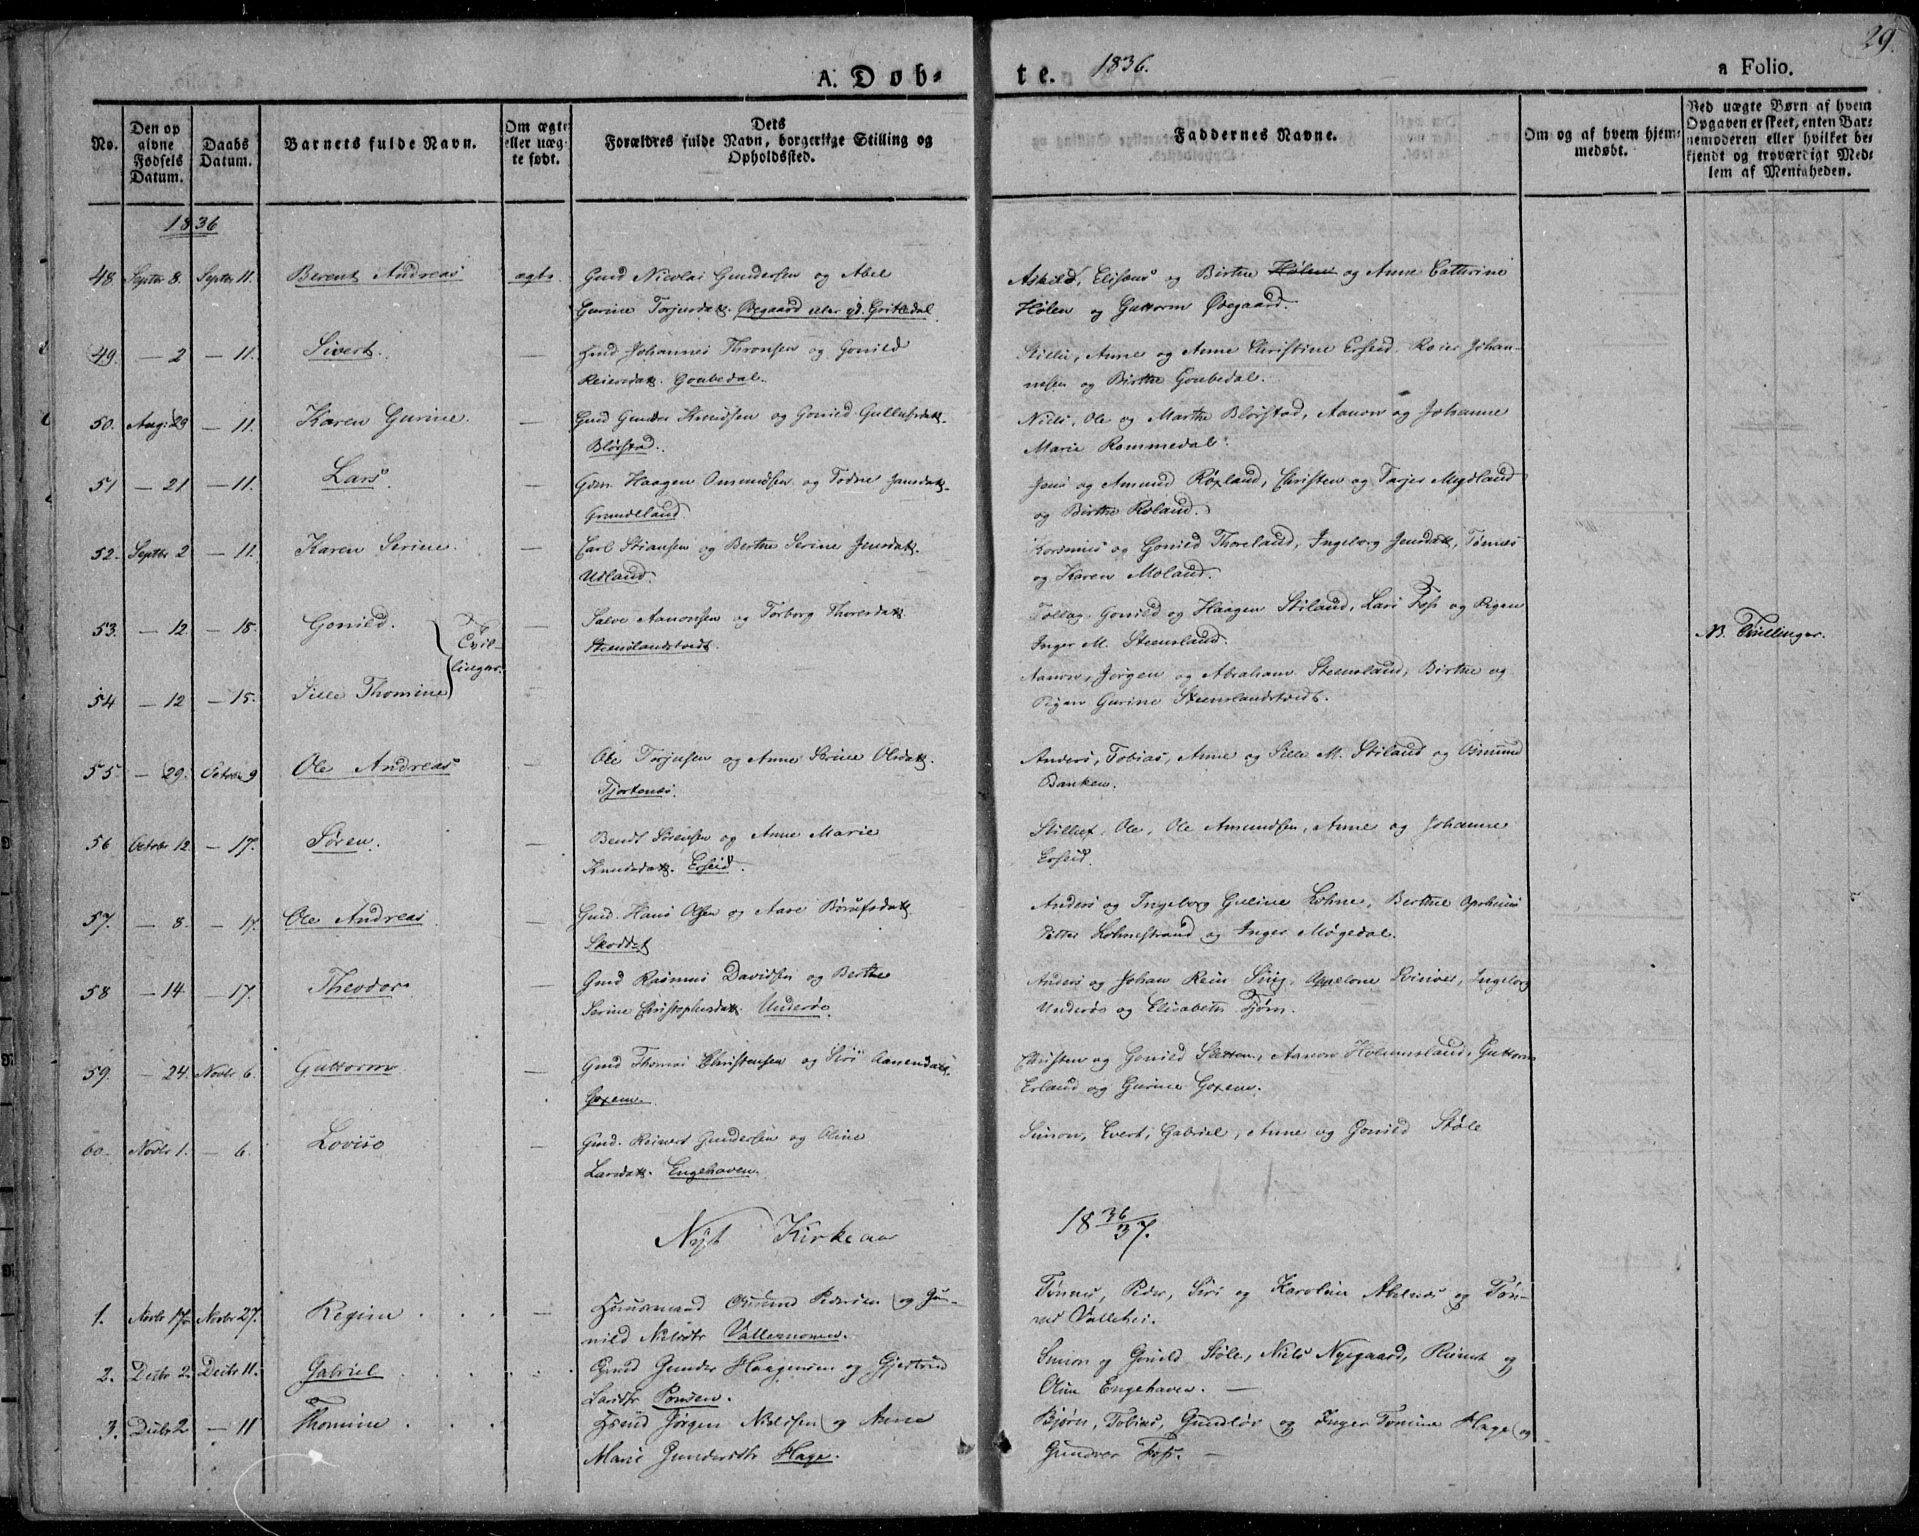 29.
A. Døb-
te. 1836.
a Folio.
No.
Den op
givne
Fødsels
Datum.
Daabs
Datum.
Barnets fulde Navn.
Om ægte
eller uæg-
te født.
Dets
Forældres fulde Navn, borgerlige Stilling og
Opholdssted.
Faddernes Navne.
Om og af hvem hjem-
medøbt.
Ved uægte Børn af hvem
Opgaven er skeet, enten Bar-
nemoderen eller hvilket be-
kjendt og troværdigt Med-
lem af Menigheden.
1836
48. Septbr 8. Septbr 11. Berent Andreas ægte Gmd Nicolai Gundersen og Abel
Gurine Torjusdatt. Øvegaard eller yd. Gritledal
Askild, Eliseus og Birthe Hølen og Anne Cathrine
Hølen og Guttorm Øvegaard.
49. — 2 — 11. Sivert. — Hmd Johannes Thronsen og Gonild
Reiersdatt. Goubedal.
Anne og Anne Christine Erseid. Reier Johan-
nesen og Birthe Goubedal.
50. Aug: 29 — 11. Karen Gurine — Gmd Gunder Knudsen og Gonild Gullufsdatt.
Blørstad.
Niels, Ole og Marthe Blørstad, Aanon og Johanne
Marie Rommedal.
51 — 21 — 11. Lars. — Gdm. Haagen Omundsen og Todne Jansdatt.
Grundeland.
Jens og Amund Røxland, Christen og Tarjer Mydland
og Birthe Roland.
52. Septbr 2 — 11. Karen Serine. — Carl Stiansen og Berthe Serine Jensdatt.
Udland.
og Gonild Thoreland, Ingeborg Jensdatt, Tønnes
og Karen Moland.
53. — 12 — 18. Gonild. Tvil-
linger. — Salve Aanonsen og Torborg Thoresdatt.
Steenslandstvedt.
Tollag. Gonild og Haagen Stiland, Lars Foss og Pigen
Inger M. Steensland.
NB. Tvillinger.
54 — 12 — 15. Sille Thomine —
Aanon, Jørgen og Abraham Steensland, Birthe og
Pigen Gurine Steenslandstvedt.
55. — 29. Octobr 9 Ole Andreas — Ole Torjusen og Anne Serine Olsdatt.
Tjortenæs.
Anders, Tobias, Anne og Sille M. Stiland og Osmund
Banken.
56 Octobr 12. — 17. Søren. — Bendt Sørensen og Anne Marie
Knudsdatt. Erseid.
Stillef, Ole, Ole Amundsen, Anne og Johanne
Erseid.
57. — 8. — 17. Ole Andreas — Gmd. Hans Olsen og Aase Børufsdatt
Skoddet
Anders og Ingeborg Guline Lohne, Berthe
Petter Lohnestrand og Inger Møgedal.
58 — 14. — 17. Theodor — Gmd Rasmus Davidsen og Berthe
Serine Christophersdatt. Underøe
Anders og Johan Rein Svig, Appelone Ingeborg
Underøe og Elisabeth Fjørn.
59. — 24. Novbr 6. Guttorm — Gmd Thomas Christensen og Siri Aanensdatt.
Goxem.
Christen og Gonild Aanon Holumsland, Guttorm
Erland og Gurine Goxem.
60. Novbr 1. — 6. Lovise — Gmd. Reinert Gundersen og Oline
Larsdatt. Engehaven.
Simon, Evert, Gabriel, Anne og Gonild Støle
Nyt Kirkeaar
18 36/37.
1. Novbr 17. Novbr 27. Regine — Huusmand Osmund Pedersen og Gu-
nild Nielsdtr Vallernomen.
Tønnes, Peder, Siri og Karoline Abelnæs og Tøn-
nes Vallehei.
2. Decbr 2. Decbr 11. Gabriel Gmd Gunder Haagensen og Gjertrud
Larsdtr Ponsen.
Simon og Gonild Støle, Niels Nyegaard, Reinert og
Oline Engehaven. —
3. Decbr 2 — 11 Thomine — Hsmd Jørgen Nielsen og Anne
Marie Gundersdtr Hage.
Bjørn, Tobias, Gundlov og Inger Tomine Hage og
Gundver Foss. —